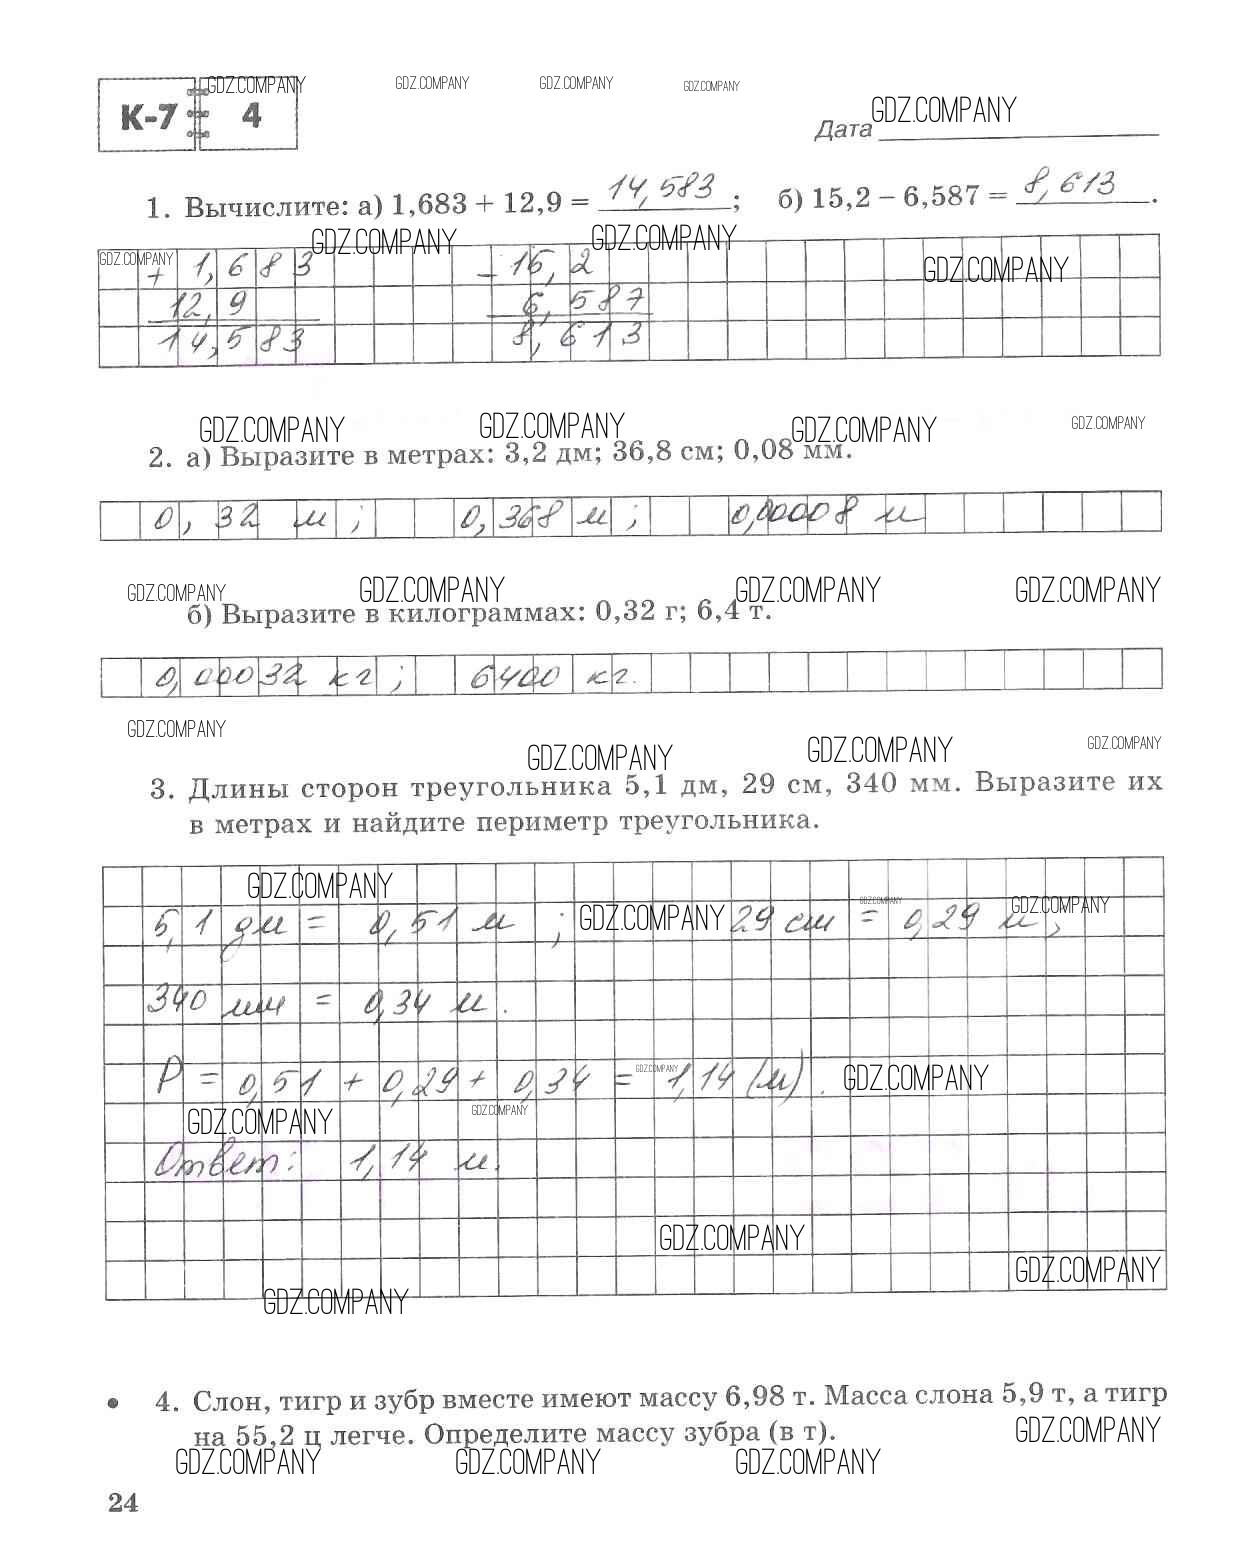 GDZ.COMPANY GDZ.COMPANY GDZ.COMPANY GDZ.COMPANY
К-7 4 GDZ.COMPANY
Дата
1. Вычислите: а) 1,683 + 12,9 = 14,583; б) 15,2 – 6,587 = 8,613.
GDZ.COMPANY GDZ.COMPANY
GDZ.COMPANY + 1,683 – 15,2 GDZ.COMPANY
12,9 6,587
14,583 8,613
GDZ.COMPANY GDZ.COMPANY GDZ.COMPANY GDZ.COMPANY
2. а) Выразите в метрах: 3,2 дм; 36,8 см; 0,08 мм.
0,32 м; 0,368 м; 0,00008 м
GDZ.COMPANY GDZ.COMPANY GDZ.COMPANY GDZ.COMPANY
б) Выразите в килограммах: 0,32 г; 6,4 т.
0,00032 кг; 6400 кг.
GDZ.COMPANY GDZ.COMPANY GDZ.COMPANY GDZ.COMPANY
3. Длины сторон треугольника 5,1 дм, 29 см, 340 мм. Выразите их
в метрах и найдите периметр треугольника.
GDZ.COMPANY GDZ.COMPANY GDZ.COMPANY
5,1 дм = 0,51 м; GDZ.COMPANY 29 см = 0,29 м;
340 мм = 0,34 м.
GDZ.COMPANY
P = 0,51 + 0,29 + 0,34 = 1,14 (м). GDZ.COMPANY
GDZ.COMPANY GDZ.COMPANY
Ответ: 1,14 м.
GDZ.COMPANY
GDZ.COMPANY
GDZ.COMPANY
• 4. Слон, тигр и зубр вместе имеют массу 6,98 т. Масса слона 5,9 т, а тигр
на 55,2 ц легче. Определите массу зубра (в т). GDZ.COMPANY
GDZ.COMPANY GDZ.COMPANY GDZ.COMPANY
24